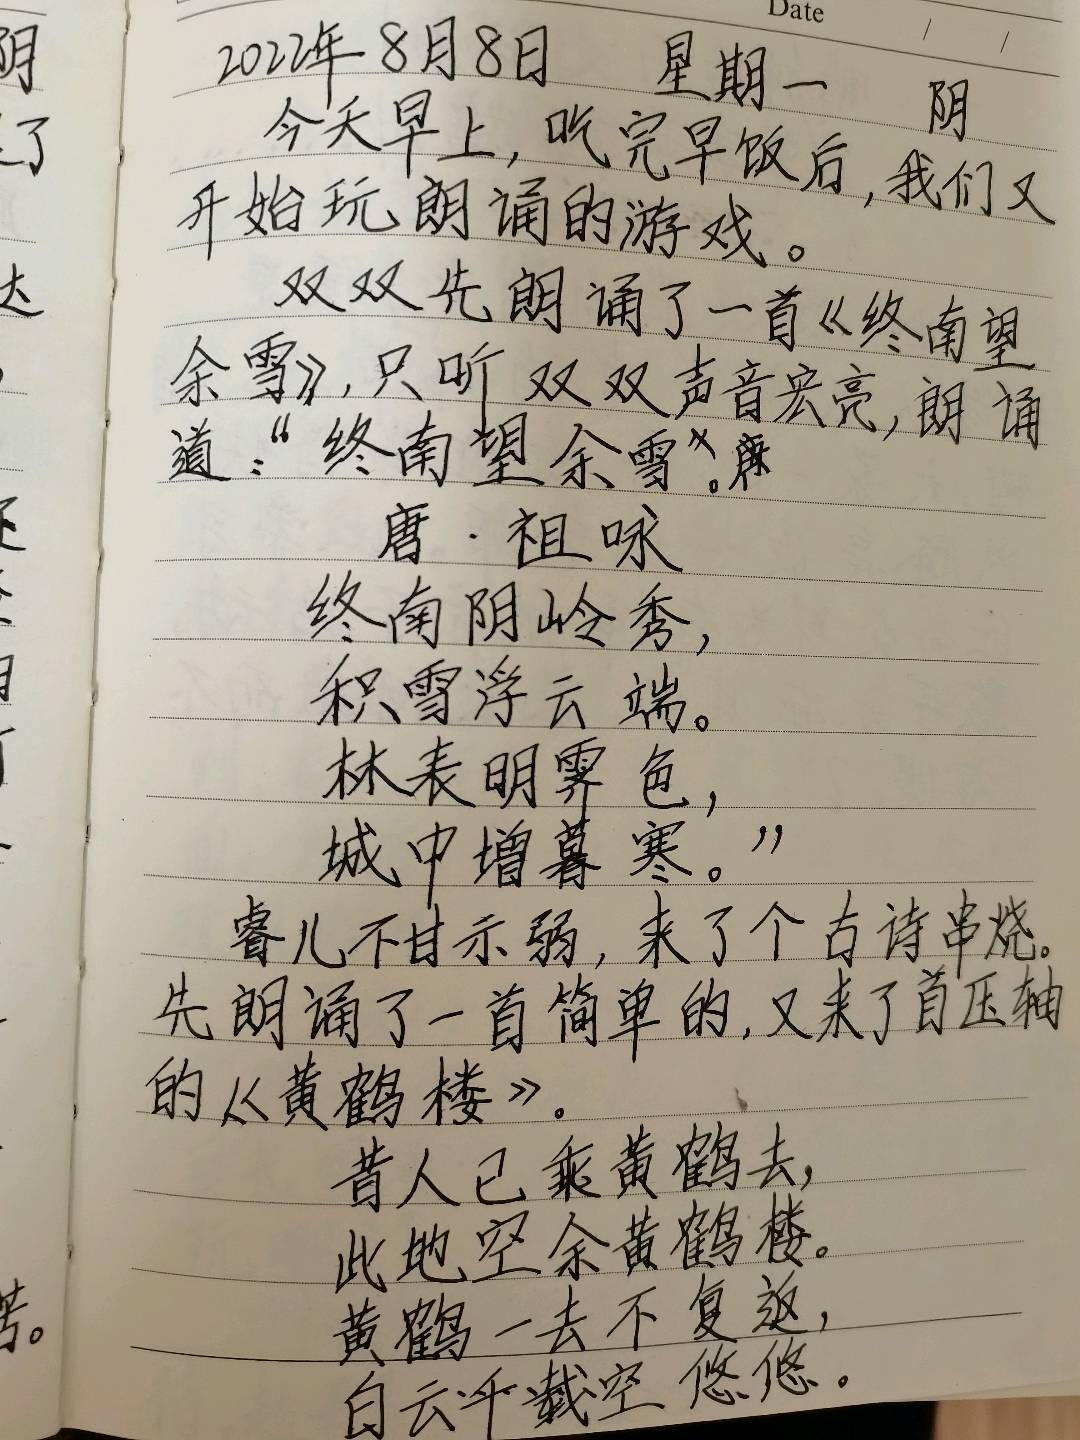 Date / /
2022年8月8日 星期一 阴
今天早上,吃完早饭后,我们又
开始玩朗诵的游戏。
双双先朗诵了一首《终南望
余雪》,只听双双声音宏亮,朗诵
道:“终南望余雪”。
唐·祖咏
终南阴岭秀,
积雪浮云端。
林表明霁色,
城中增暮寒。”
睿儿不甘示弱,来了个古诗串烧。
先朗诵了一首简单的,又来了首压轴
的《黄鹤楼》.
昔人已乘黄鹤去,
此地空余黄鹤楼。
黄鹤一去不复返,
白云千载空悠悠。
阴
了
达
苦。